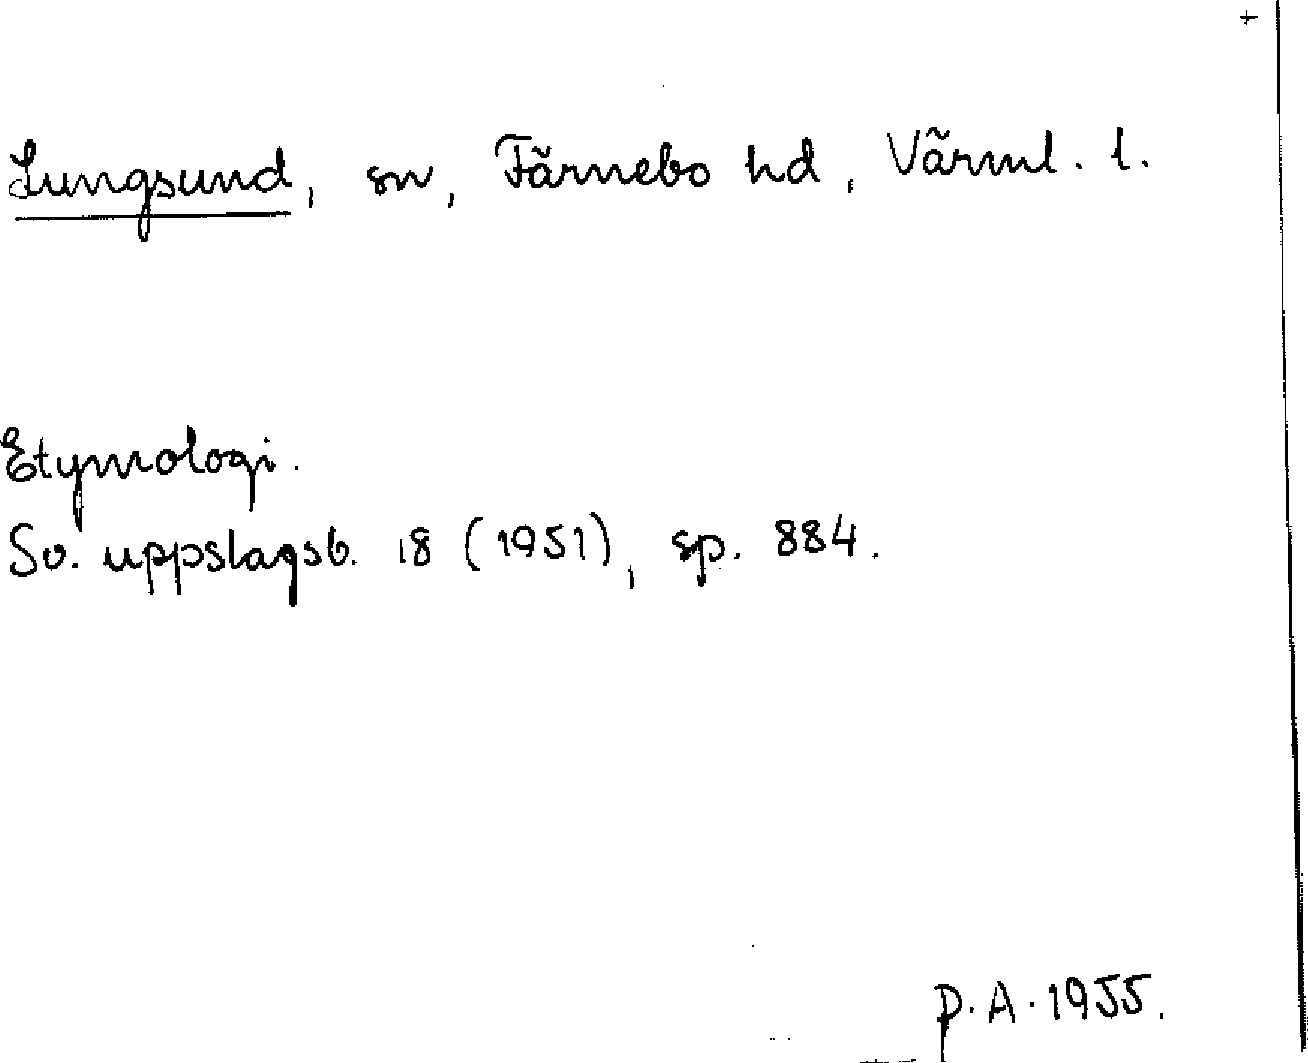 +
Lungsund, sn, Färnebo hd, Värml. l.
Etymologi.
Sv. uppslagsb. 18 (1951), sp. 884.
P.A. 1955.